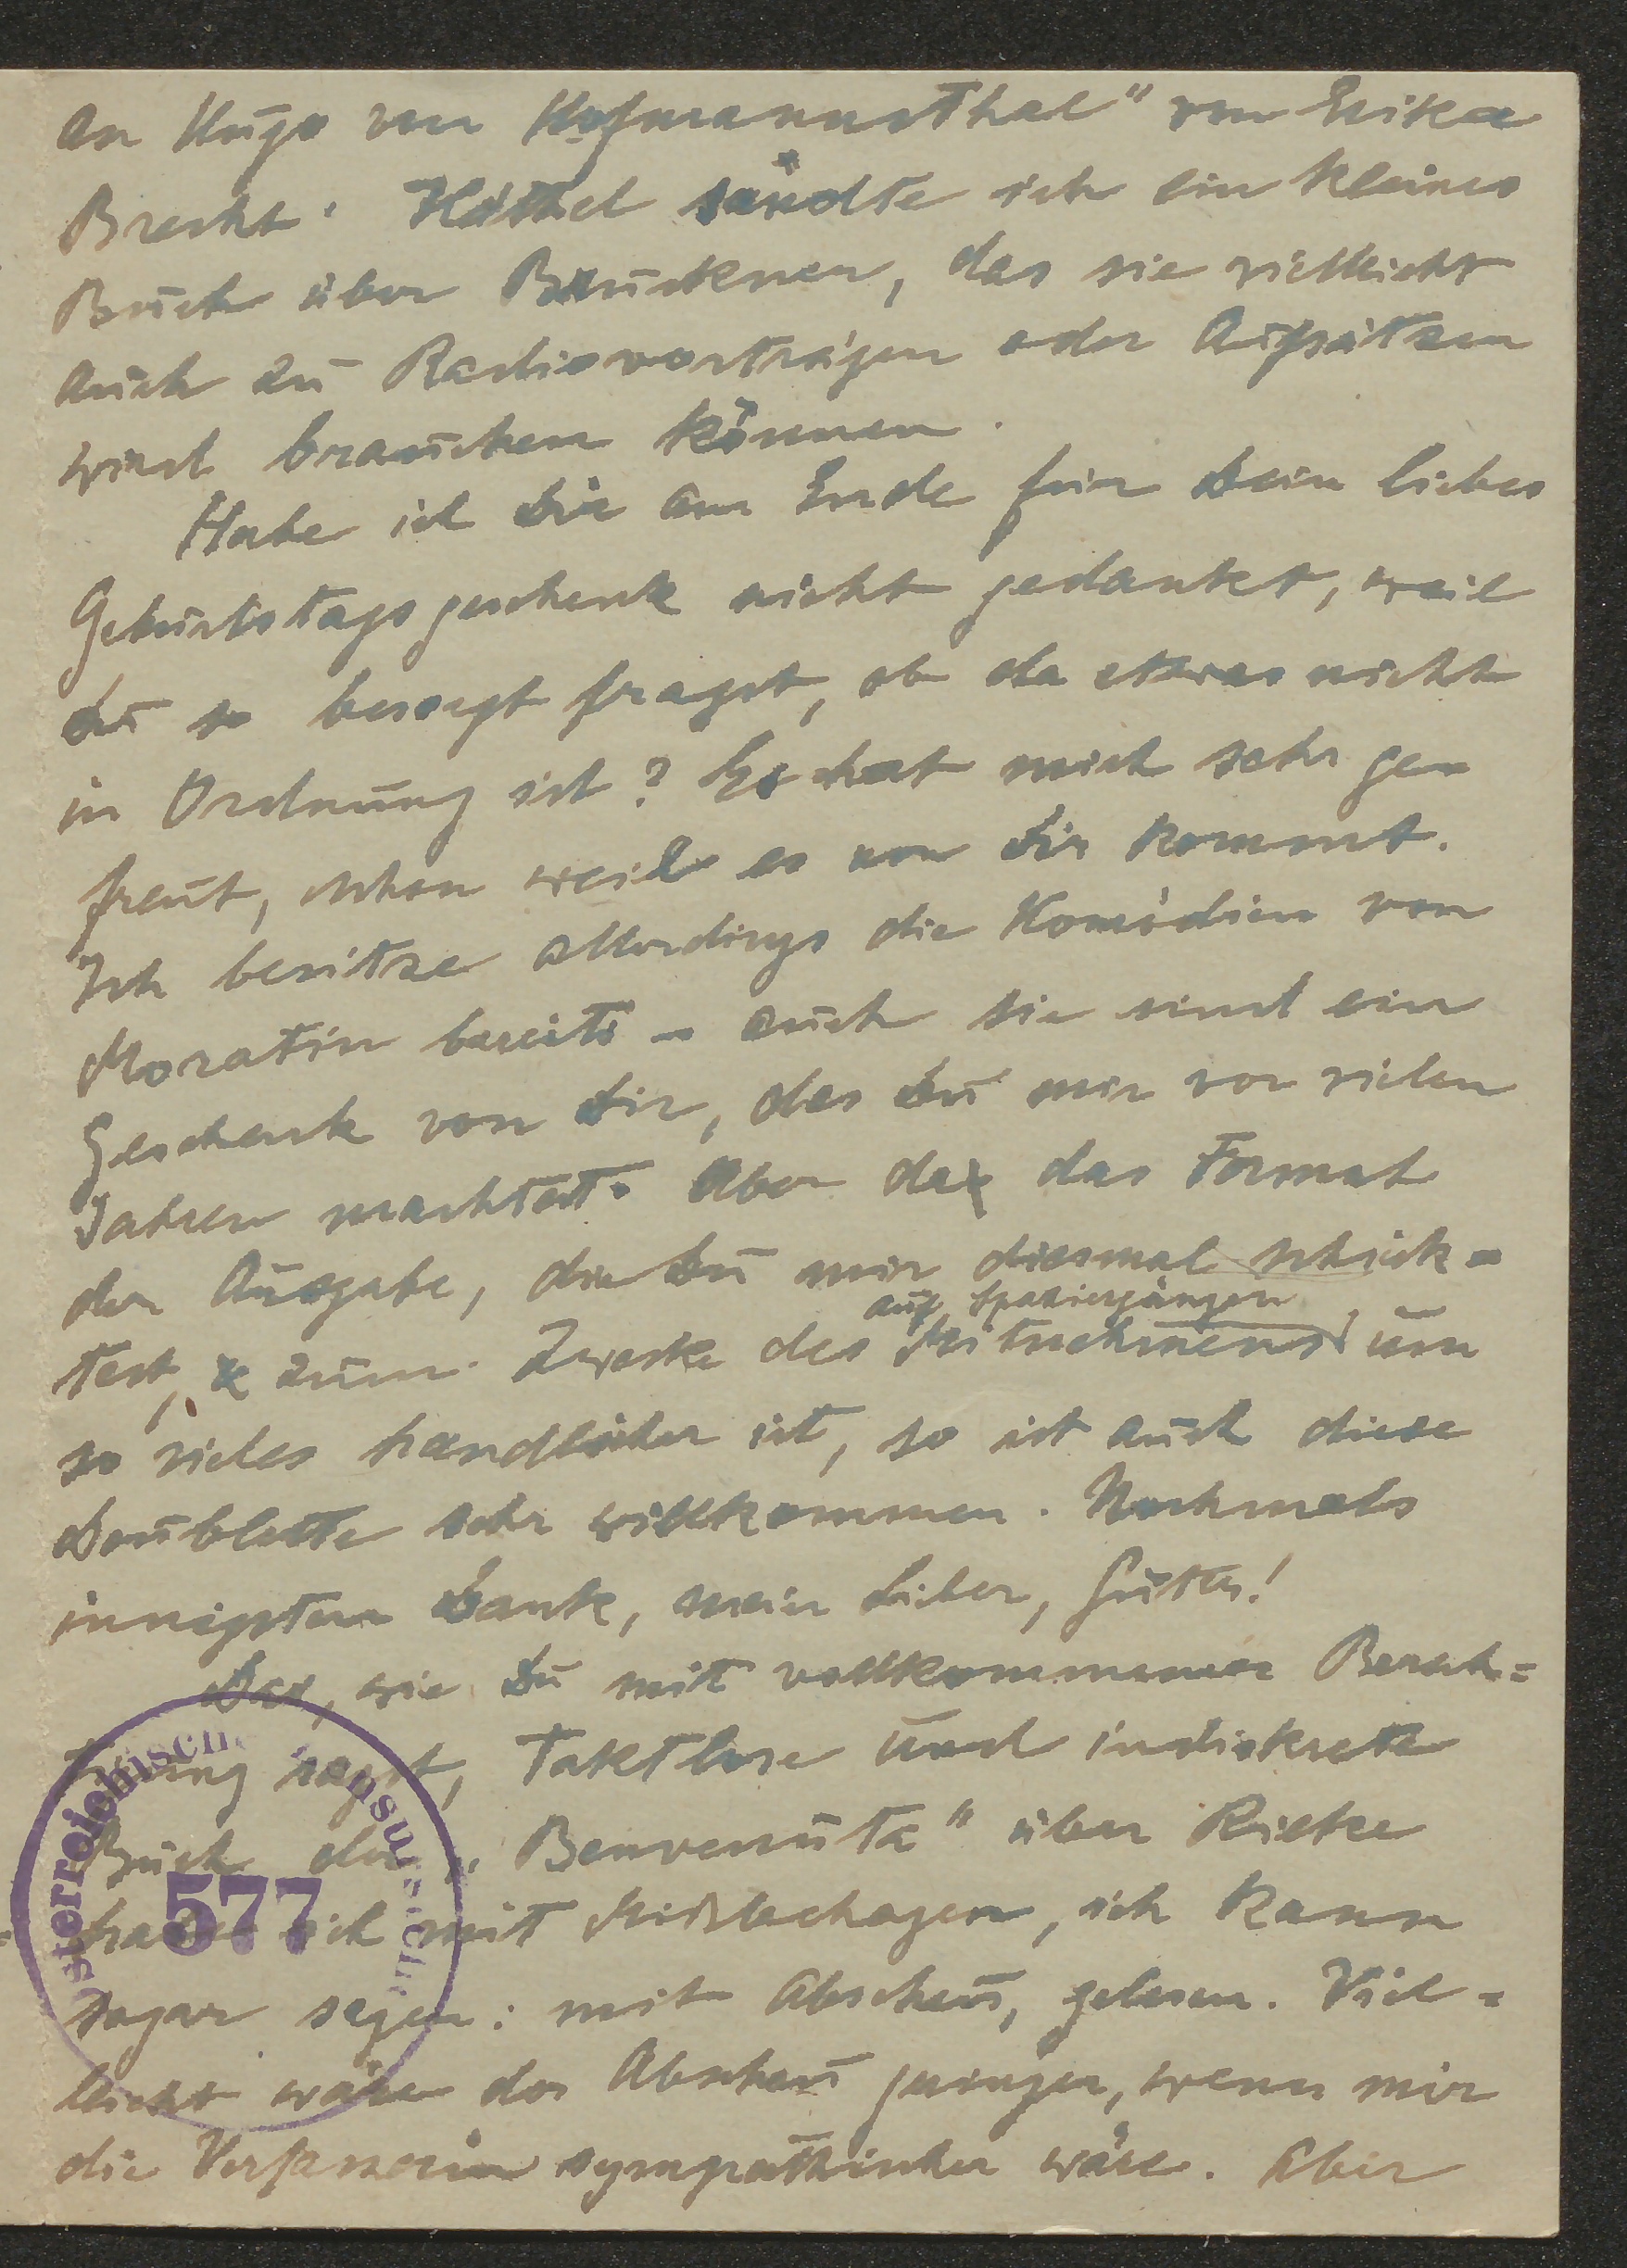 an Hugo von Hofmannsthal" von Erika
Brecht. Hättel sandte ich ein kleines
Buch über Bruckner, das sie vielleicht
auch zu Radiovorträgen oder Aufsätzen
wird brauchen können.
Habe ich Dir am Ende für Dein liebes
Geburtstagsgeschenk nicht gedankt, weil
Du so besorgt fragst, ob da etwas nicht
in Ordnung ist? Es hat mich sehr ge=
freut, schon weil es von Dir kommt.
Ich besitze allerdings die Komödien von
Moratin bereits - auch sie sind ein
Geschenk von Dir, das Du mir vor vielen
Jahren machtest. Aber da das Format
der Ausgabe, die Du mir diesmal schick=
auf Spaziergängen
test, zum Zwecke des Mitnehmens um
so vieles handlicher ist, so ist auch diese
Doublette sehr willkommen. Nochmals
innigsten Dank, mein Lieber, Guter!
Das, wie Du mit vollkommener Berech=
tigung sagst, taktlose und indiskrete
Buch der „Benvenuta" über Rilke
habe ich mit Mißbehagen, ich kann
sogar sagen: mit Abscheu, gelesen. Viel=
leicht wäre der Abscheu geringer, wenn mir
die Verfasserin sympathischer wäre. Aber
577